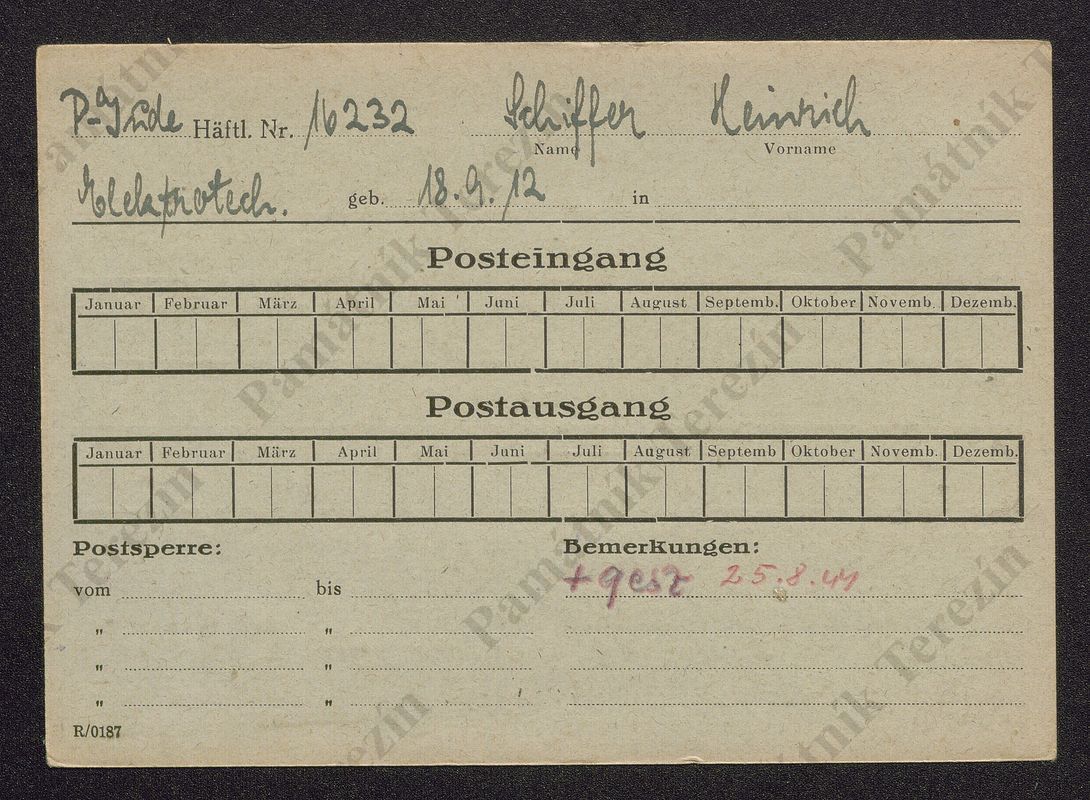 P-Jude Häftl. Nr. 16232 Schiffer Heinrich
Name Vorname
Elektrotech. geb. 18.9.12 in
Posteingang
Januar Februar März April Mai Juni Juli August Septemb. Oktober Novemb. Dezemb.
Postausgang
Januar Februar März April Mai Juni Juli August Septemb Oktober Novemb. Dezemb.
Postsperre: Bemerkungen:
vom bis + gest 25.8.44
" "
" "
" "
R/0187
Památník Terezín